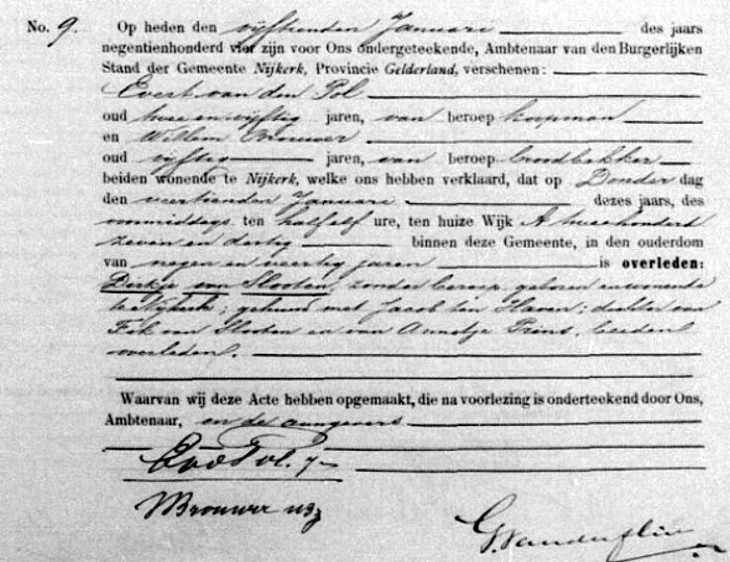 No. 9. Op heden den vijftienden Januari des jaars
negentienhonderd vier zijn voor Ons ondergeteekende, Ambtenaar van den Burgerlijken
Stand der Gemeente Nijkerk, Provincie Gelderland, verschenen:
Evert van den Pol
oud twee en vijftig jaren, van beroep koopman
en Willem Brouwer
oud vijftig jaren, van beroep broodbakker
beiden wonende te Nijkerk, welke ons hebben verklaard, dat op Donderdag
den veertienden Januari dezes jaars, des
voormiddags ten halfelf ure, ten huize Wijk A tweehonderd
zeven en dertig binnen deze Gemeente, in den ouderdom
van negen en veertig jaren is overleden:
Dirkje van Slooten, zonder beroep, geboren en wonende
te Nijkerk; gehuwd met Jacob ten Haven; dochter van
van Slooten en van Annetje Prins, beiden
overleden.
Waarvan wij deze Acte hebben opgemaakt, die na voorlezing is onderteekend door Ons,
Ambtenaar, en de aangevers
EvdPol.
WBrouwer